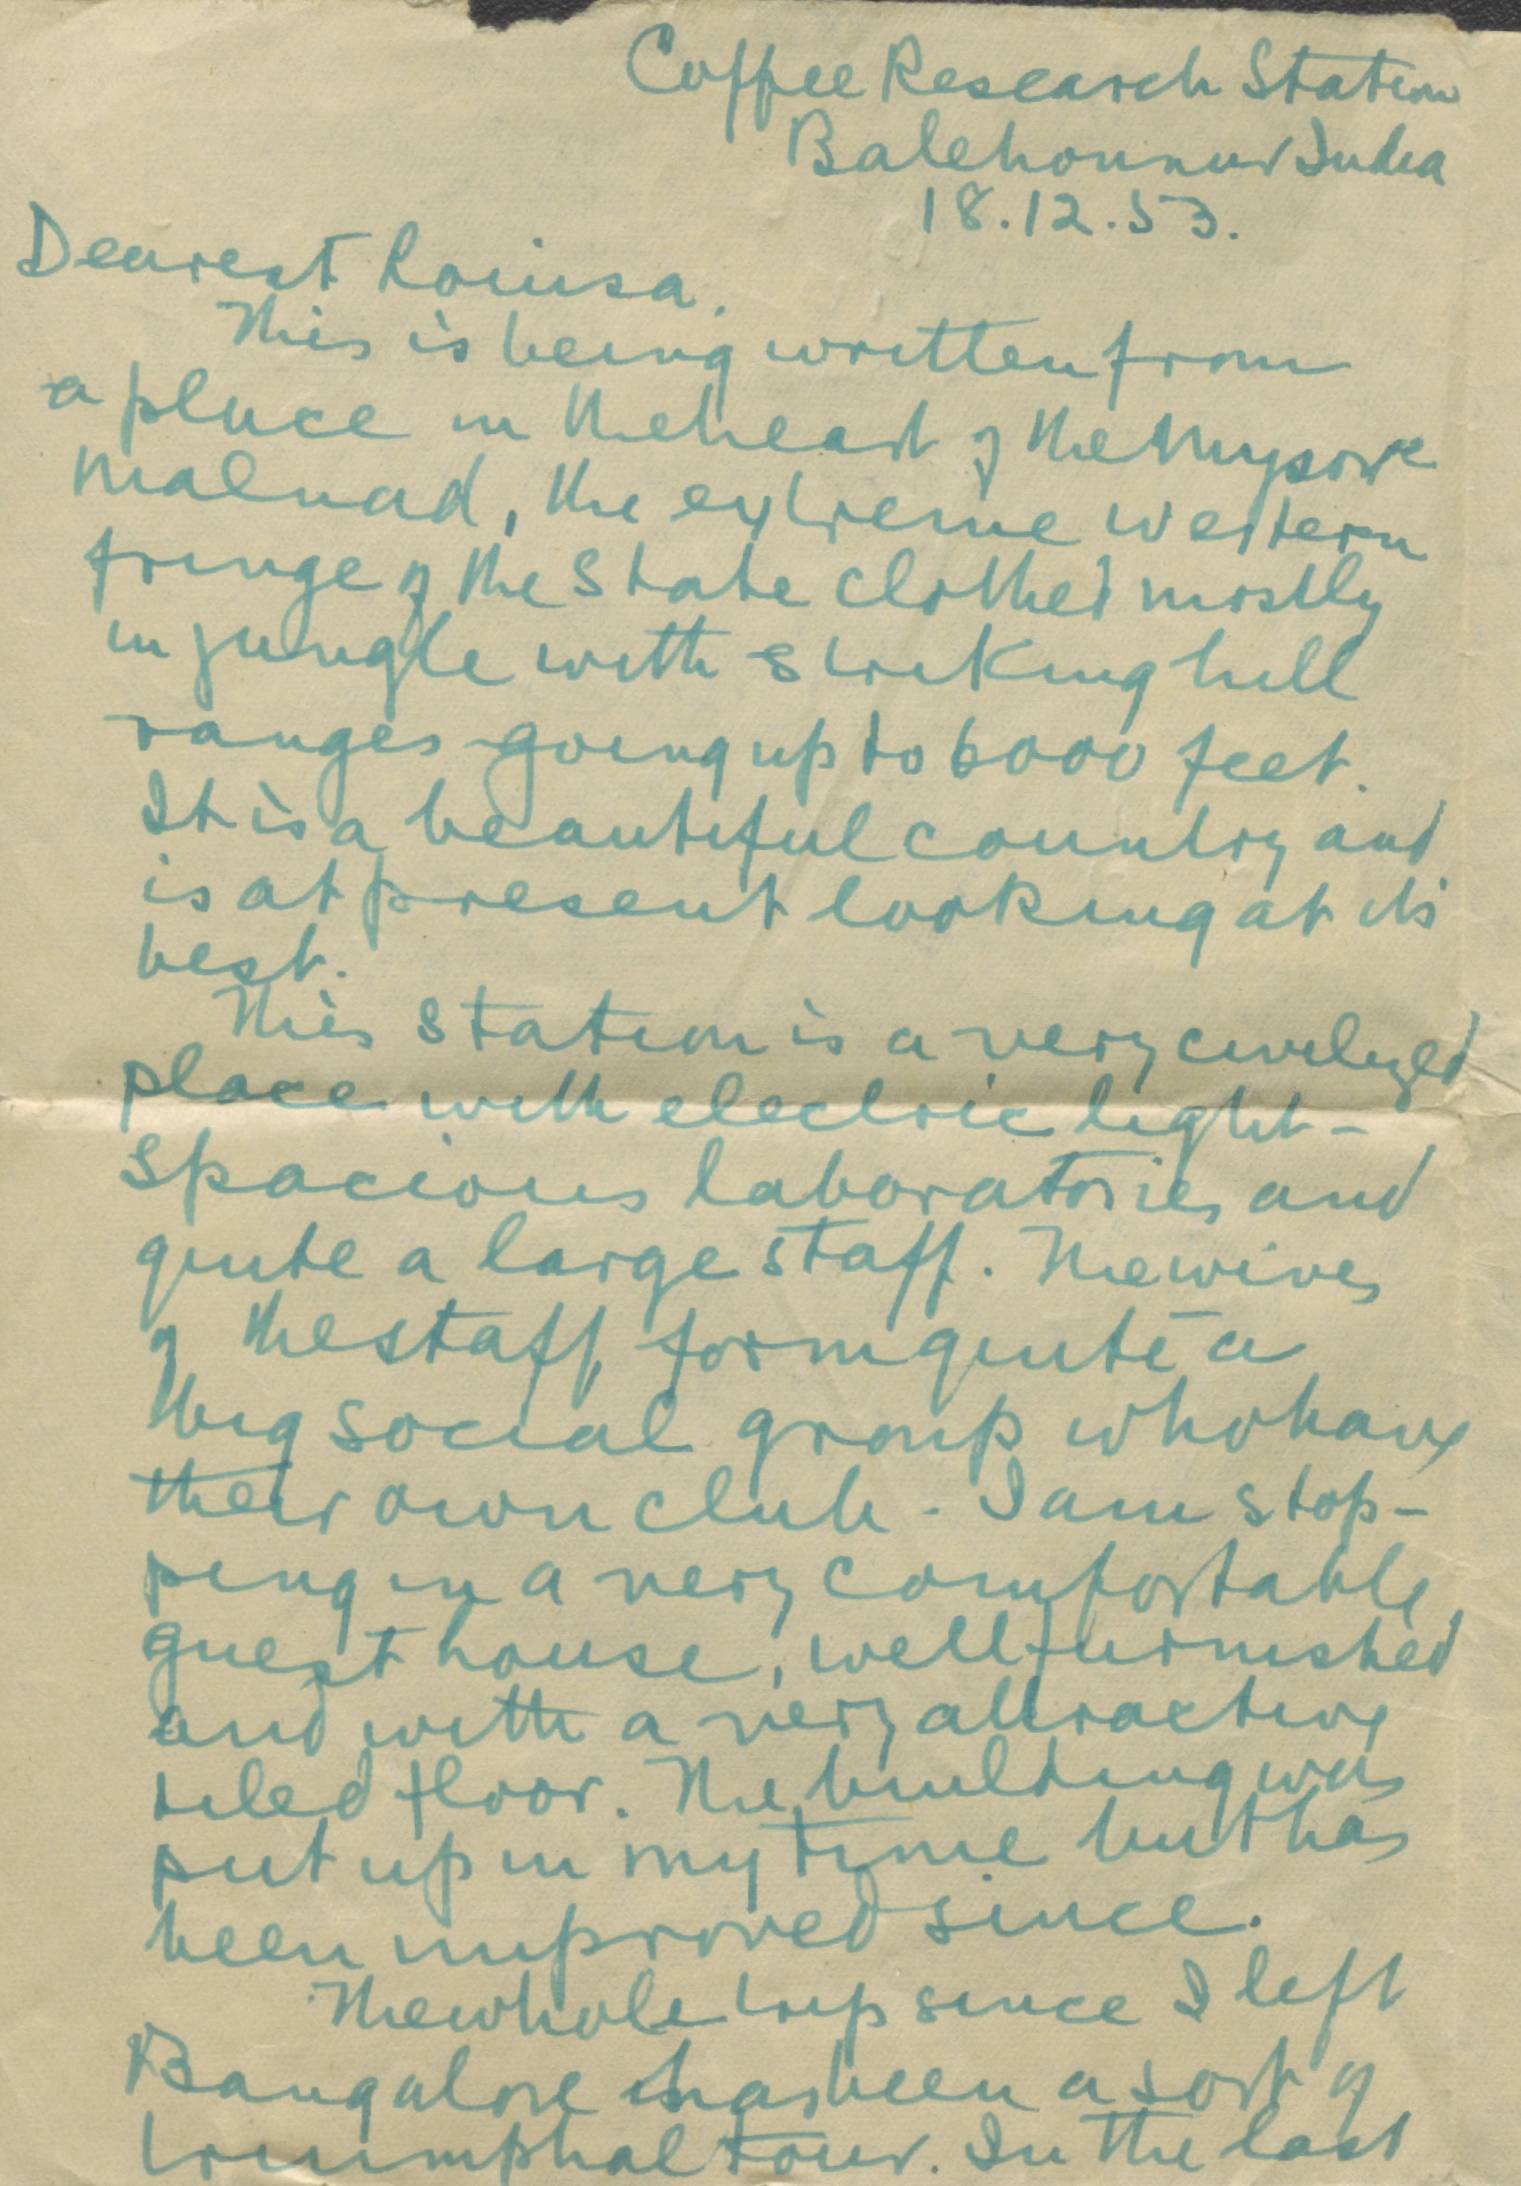 Coffee Research Station
Balehonnur India
18.12.53.
Dearest Louisa.
This is being written from
a place in the heart of the Mysore
Malnad, the extreme western
fringe of the State clothed mostly
in jungle with striking hill
ranges going up to 6000 feet.
It is a beautiful country and
is at present looking at its
best.
This station is a very civilized
place with electric light-
spacious laboratories and
quite a large staff. The wives
of the staff form quite a
big social group who have
their own club. I am stop-
ping in a very comfortable
guest house, well furnished
and with a very attractive
tiled floor. The building was
put up in my time but has
been improved since.
The whole trip since I left
Bangalore has been a sort of
triumphal tour. In the last